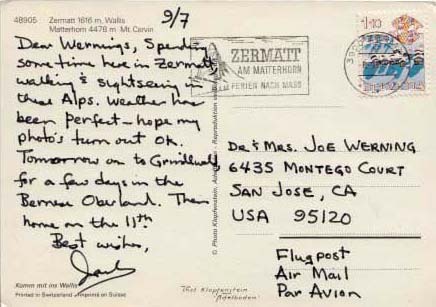 48905 Zermatt 1616 m, Wallis
Matterhorn 4478 m Mt. Cervin
9/7
Dear Wernings, Spending
some time here in Zermatt,
walking & sightseeing in
these Alps. Weather has
been perfect - hope my
photo's turn out OK.
Tomorrow on to Grindlwald
for a few days in the
Bernese Oberland. Then
home on the 11th
Best wishes,
Kommt mit ins Wallis
Printed in Switzerland • Imprimé en Suisse
© Photo Klopfenstein, Adelboden - Reproduktion
ZERMATT
AM MATTERHORN
FERIEN NACH MASS
DR & MRS. JOE WERNING
6435 MONTEGO COURT
SAN JOSE, CA
USA 95120
Flugpost
Air Mail
Par Avion
Klopfenstein
"Adelboden"